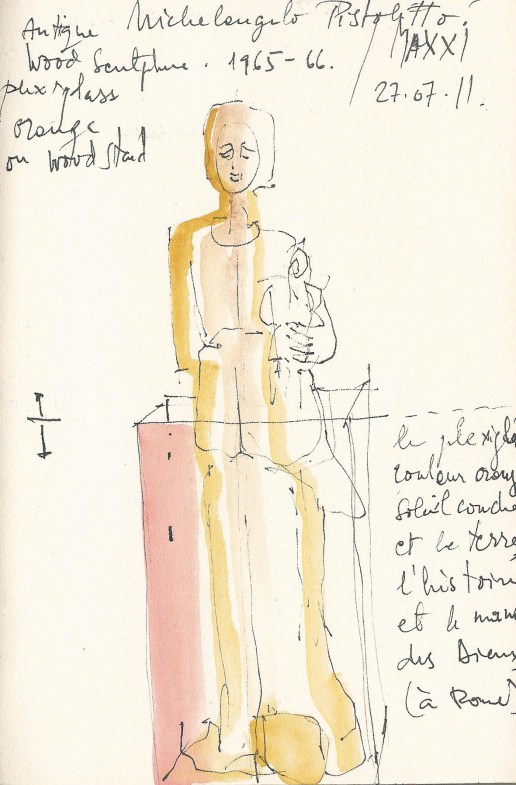 Michelangelo Pistoletto.
MAXXI
27.07.11.
Antique
wood sculpture. 1965-66.
plexiglass
orange
on wood stand
le plexigla
couleur orang
soleil couche
et la terre
l'histoire
et le
des Dieux
(à Rome)